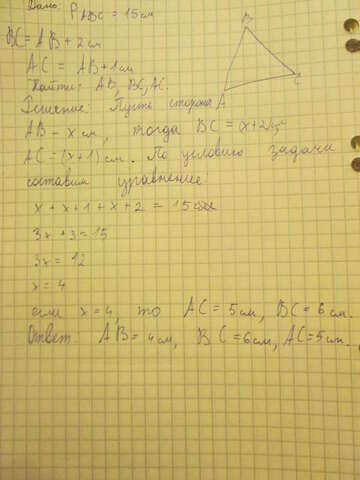 Дано: PABC = 15 см
BC = AB + 2 см
AC = AB + 1 см
Найти: AB, BC, AC.
Решение: Пусть сторона
AB - x см, тогда BC = (x+2)
AC = (x+1) см. По условию задачи
составим уравнение:
x + x + 1 + x + 2 = 15
3x + 3 = 15
3x = 12
x = 4
если x = 4, то AC = 5 см, BC = 6 см.
Ответ: AB = 4 см, BC = 6 см, AC = 5 см.
B
A
C